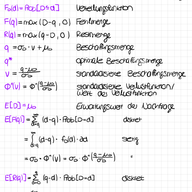 F₀(d) = Prob[D ≤ d] Verteilfunktion
F(q) = max(D-q, 0) Fehlmenge
R(q) = max(q-D, 0) Restmenge
q = σ₀ · v + μ₀ Beschaffungsmenge
q* optimale Beschaffungsmenge
v = (q-μ₀)/σ₀ standardisierte Beschaffungsmenge
Φ*(v) = Φ*((q-μ₀)/σ₀) standardisierte Verlustfunktion/
Wert der Verlustfunktion
E[D] = μ₀ Erwartungswert der Nachfrage
E[F(q)] = Σ (d-q) · Prob[D=d] diskret
= ∫ (d-q) · f₀(d) · dd stetig
= σ₀ · Φ*(v) = σ₀ · Φ*((q-μ₀)/σ₀)
E[R(q)] = Σ (q-d) · Prob[D=d] diskret